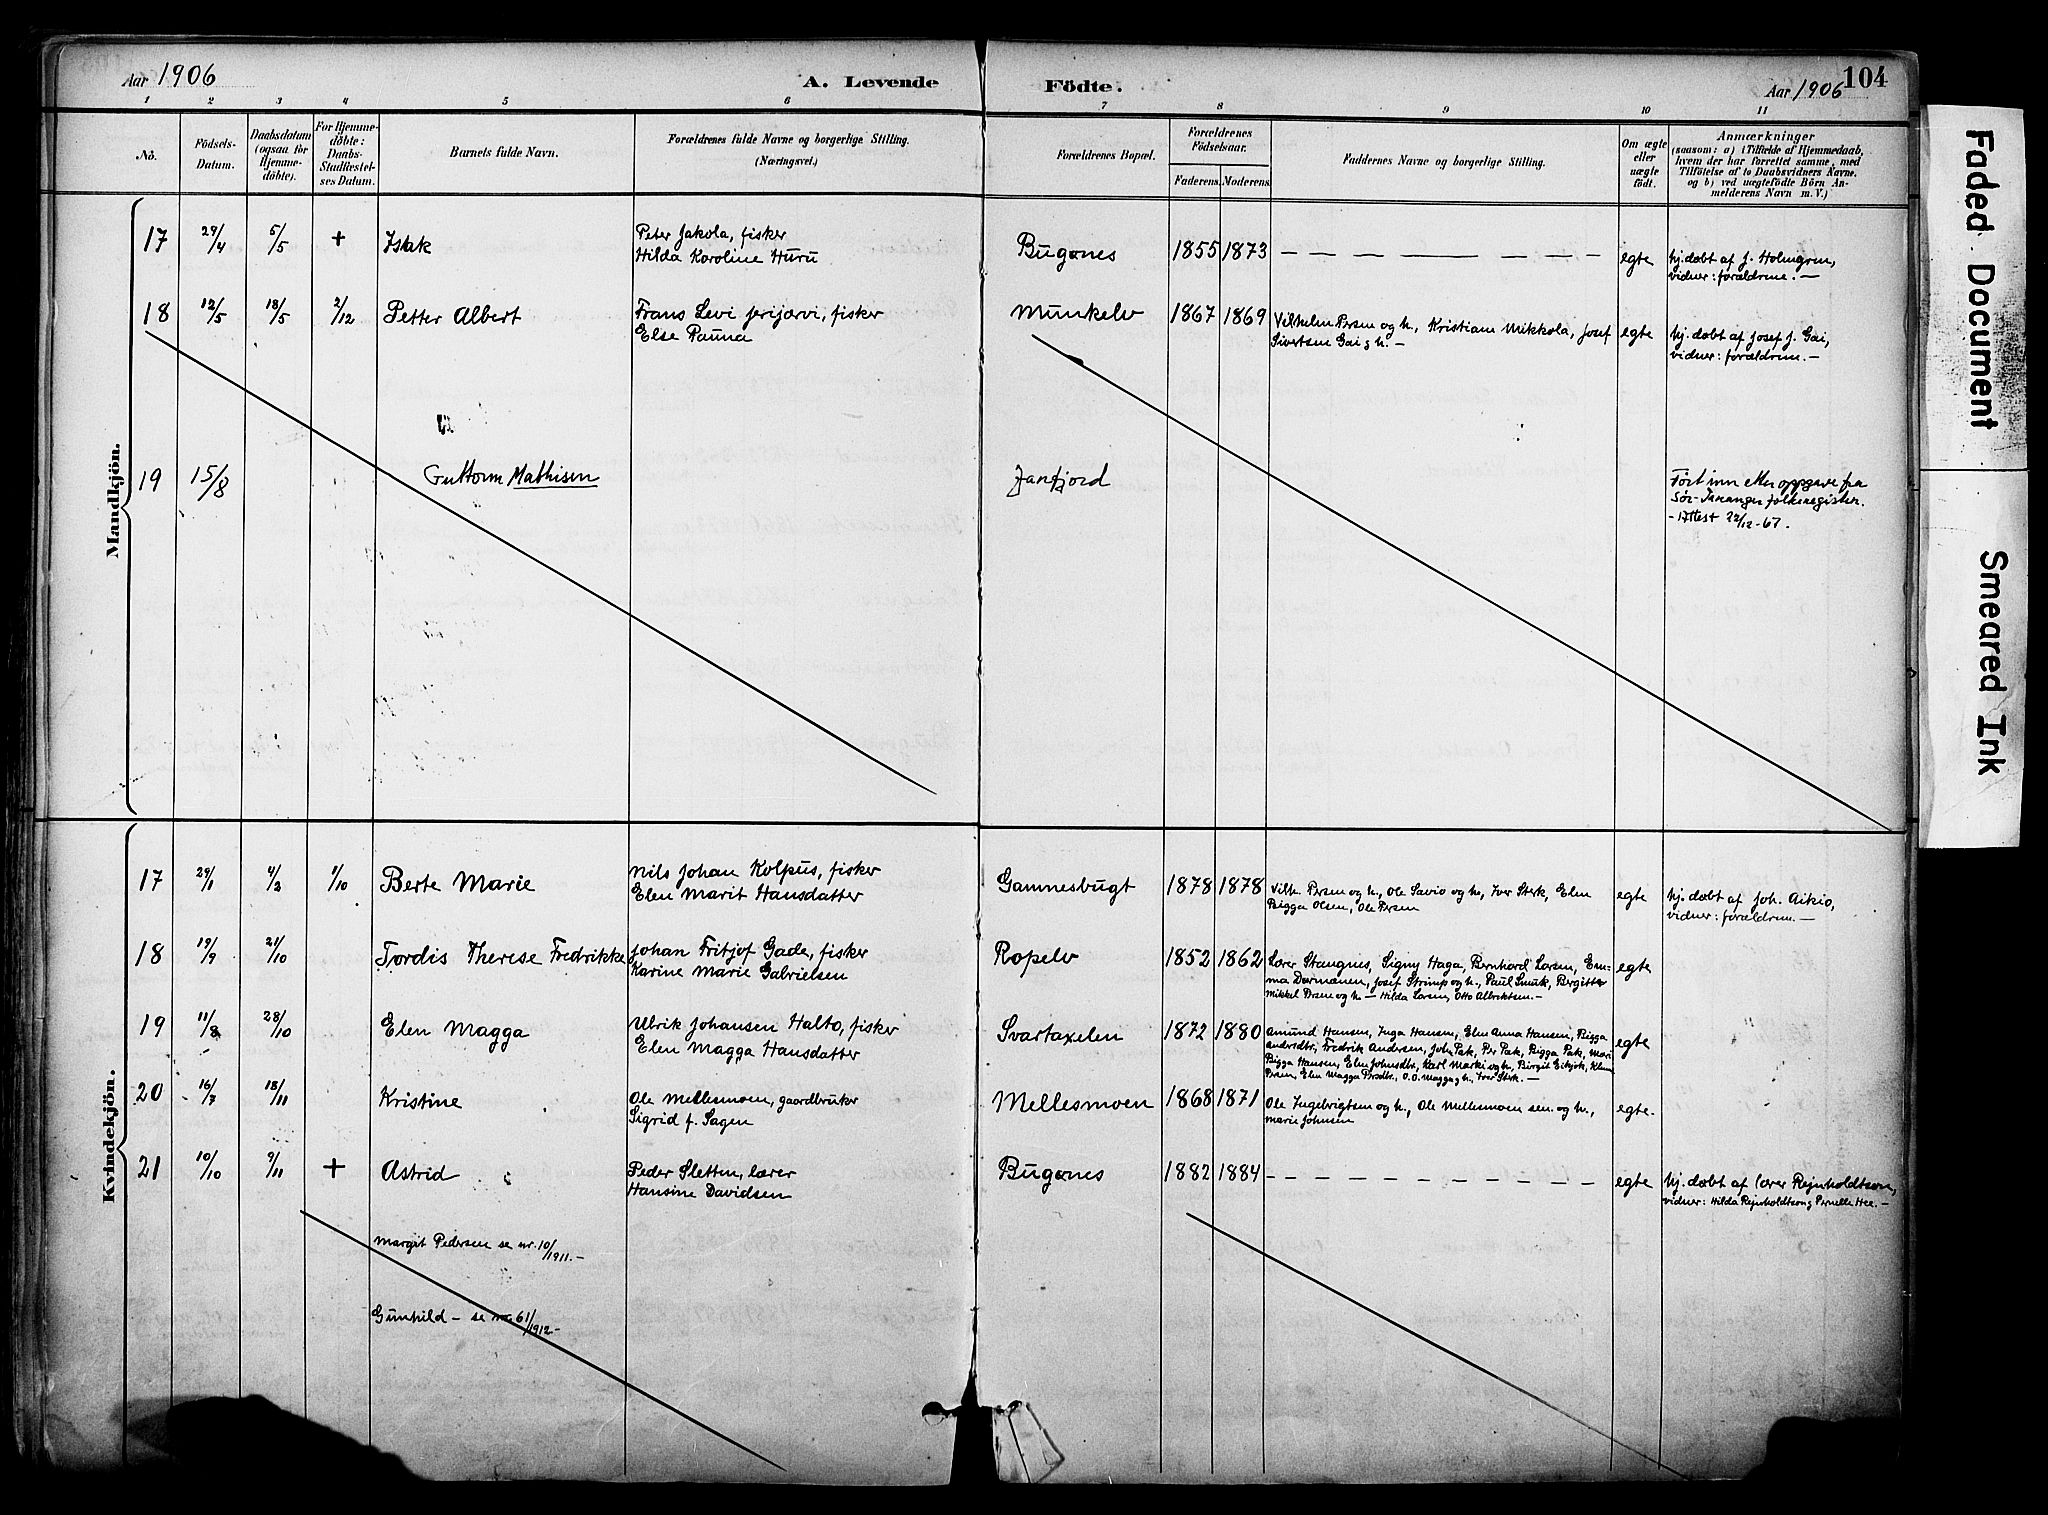 Aar 1906
A. Levende
Födte.
Aar 1906
104
1 2 3 4 5 6 7 8 9 10 11
No.
Födsels-
Datum.
Daabsdatum
(ogsaa for
Hjemme-
döbte).
For Hjemme-
döbte:
Daabs-
Stadfestel-
ses Datum.
Barnets fulde Navn.
Forældrenes fulde Navne og borgerlige Stilling.
(Næringsvei.)
Forældrenes Bopæl.
Forældrenes
Födselsaar.
Faderens. Moderens.
Faddernes Navne og borgerlige Stilling.
Om ægte
eller
uægte
födt.
Anmærkninger
(saasom: a) i Tilfælde af Hjemmedaab,
hvem der har forrettet samme, med
Tilföielse af to Daabsvidners Navne.
og b) ved uægtefödte Börn An-
melderens Navn m. V.)
Mandkjön.
17 29/4 5/5 + Isak
Peter Jakola, fisker
Hilda Karoline Huru
Bugønes 1855 1873 — — — — — — — — egte
hj. døbt af J. Holmgren,
vidner: forældrene. —
18 12/5 13/5 2/12 Petter Albert
Frans Levi Jerijærvi, fisker
Else Pauna
Munkelv 1867 1869
Vilhelm Persen og h., Kristian Mikkola, Josef
Sivertsen Gai og h. —
egte
hj. døbt af Josef J. Gai,
vidner: forældrene. —
19 15/8 Guttorm Mathisen
Jarfjord
Ført inn etter oppgave fra
Sør-Varanger folkeregister.
- Attest 22/12-67.
Kvindekjön.
17 29/1 4/2 1/10 Berte Marie
Nils Johan Kolpus, fisker
Elen Marit Hansdatter
Gamnesbugt 1878 1878
Vilh. Persen og h., Ole Savio og h., Iver Sterk, Elen
Bigga Olsen, Ole Persen
egte
hj. døbt af Joh. Aikio,
vidner: forældrene. —
18 19/9 21/10 Tordis Therese Fredrikke
Johan Fritjof Gade, fisker
Karine Marie Gabrielsen
Ropelv 1852 1862
Lærer Stangnes, Signy Haga, Bernhard Larsen, Em-
ma Dørmænen, Josef Strimp og h., Paul Smuk, Bergitte
Mikkel Persen og h. — Hilda Larsen, Otto Albriktsen. —
egte
19 11/8 28/10 Elen Magga
Ulrik Johansen Halto, fisker
Elen Magga Hansdatter
Svartaxelen 1872 1880
Amund Hansen, Inga Hansen, Elen Anna Hansen, Bigga
Andersdtr, Fredrik Andersen, John Pak, Per Pak, Bigga Pak, Mari
Bigga Hansen, Elen Johnsdtr, Karl Marki og h., Birgit Eikjok, Klem
Persen, Elen Magga Persdtr., O. O. Magga og h., Iver Sterk. —
egte
20 16/7 18/11 Kristine
Ole Mellesmoen, gaardbruker
Sigrid f. Sagen
Mellesmoen 1868 1871
Ole Ingebrigtsen og h., Ole Mellesmoen sen. og h.,
Marie Johnsen
egte.
21 10/10 9/11 + Astrid
Peder Sletten, lærer
Hansine Davidsen
Bugønes 1882 1884 — — — — — — — — — egte
hj. døbt af lærer Rejnholdtsen,
vidner: Hilda Rejnholdtsen og Pernelle Hee. —
Margit Pedersen se nr. 10/1911. —
Gunhild — se nr. 61/1912 —
Faded Document
Smeared Ink